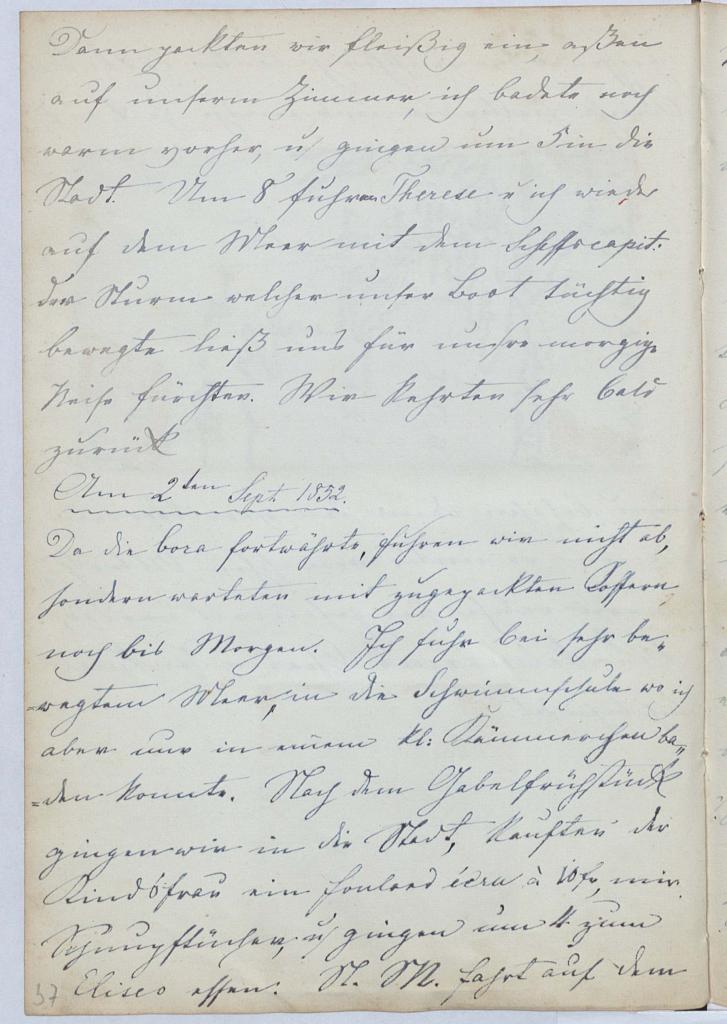 Dann packten wir fleißig ein, aßen
auf unserm Zimmer, ich badete noch
warm vorher, u/ gingen um 5 in die
Stadt. Um 8 fuhren Therese u ich wieder
auf dem Meer mit dem Schiffscapit.
der Sturm welcher unser Boot tüchtig
bewegte ließ uns für unsre morgige
Reise fürchten. Wir kehrten sehr bald
zurück
Am 2ten Sept 1852.
Da die bora fortwährte, fuhren wir nicht ab,
sondern warteten mit zugepackten Koffern
noch bis Morgen. Ich fuhr bei sehr be„
=wegtem Meer, in die Schwimmschule wo ich
aber nur in einem kl: Kämmerchen ba„
=den konnte. Nach dem Gabelfrühstück
gingen wir in die Stadt, kauften der
Kindsfrau ein foulard écru à 10 fr, mir
Schnupftücher, u/ gingen um 4 zum
Eliseo essen. St. M. fahrt auf dem
37